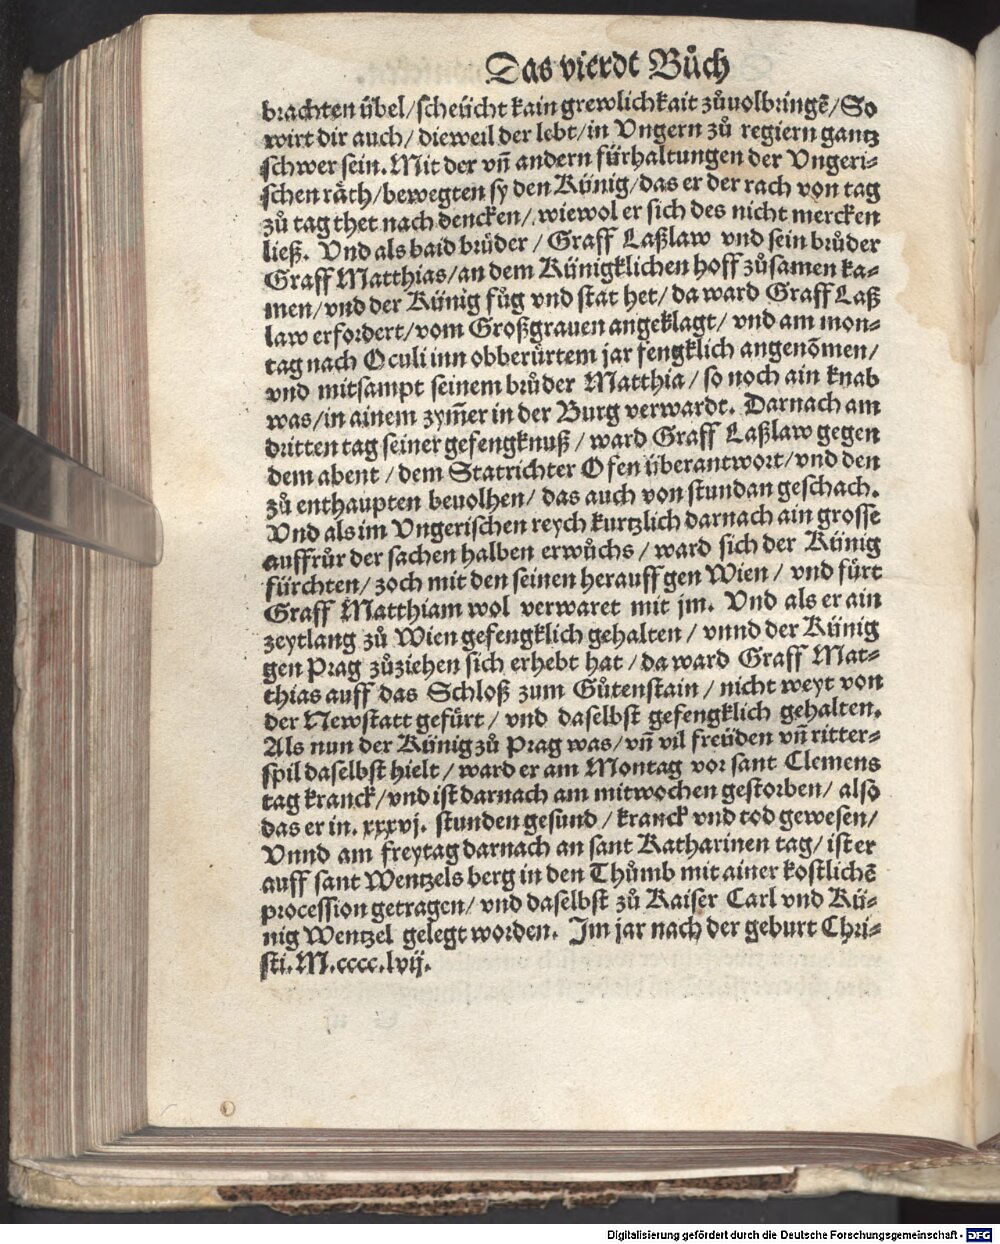 Das vierdt Bůch
brachten übel/scheücht kain grewlichkait zůuolbringẽ/So
wirt dir auch/ dieweil der lebt/in Vngern zů regiern gantz
schwer sein. Mit der vñ andern fürhaltungen der Vngeri-
schen räth/bewegten sy den Künig/das er der rach von tag
zů tag thet nach dencken/ wiewol er sich des nicht mercken
ließ. Vnd als baid brüder / Graff Laßlaw vnd sein brůder
Graff Matthias/an dem Künigklichen hoff zůsamen ka-
men/vnd der Künig fůg vnd stat het/ da ward Graff Laß
law erfordert/vom Großgrauen angeklagt/ vnd am mon-
tag nach Oculi inn obberürtem jar fengklich angenõmen/
vnd mitsampt seinem brůder Matthia/ so noch ain knab
was/in ainem zym̃er in der Burg verwardt. Darnach am
dritten tag seiner gefengknuß / ward Graff Laßlaw gegen
dem abent / dem Statrichter Ofen überantwort/vnd den
zů enthaupten beuolhen/ das auch von stundan geschach.
Vnd als im Vngerischen reych kurtzlich darnach ain grosse
auffrůr der sachen halben erwůchs / ward sich der Künig
fürchten/ zoch mit den seinen herauff gen Wien / vnd fůrt
Graff Matthiam wol verwaret mit jm. Vnd als er ain
zeytlang zů Wien gefengklich gehalten / vnnd der Künig
gen Prag zůziehen sich erhebt hat / da ward Graff Mat-
thias auff das Schloß zum Gůtenstain / nicht weyt von
der Newstatt gefürt / vnd daselbst gefengklich gehalten.
Als nun der Künig zů Prag was/vñ vil freüden vñ ritter-
spil daselbst hielt / ward er am Montag vor sant Clemens
tag kranck/vnd ist darnach am mitwochen gestorben/ also
das er in. xxxvj. stunden gesund / kranck vnd tod gewesen/
Vnnd am freytag darnach an sant Katharinen tag/ ist er
auff sant Wentzels berg in den Thůmb mit ainer kostlichẽ
procession getragen/ vnd daselbst zů Kaiser Carl vnd Kü-
nig Wentzel gelegt worden. Im jar nach der geburt Chri-
sti. M.cccc.lvij.
Digitalisierung gefördert durch die Deutsche Forschungsgemeinschaft - DFG